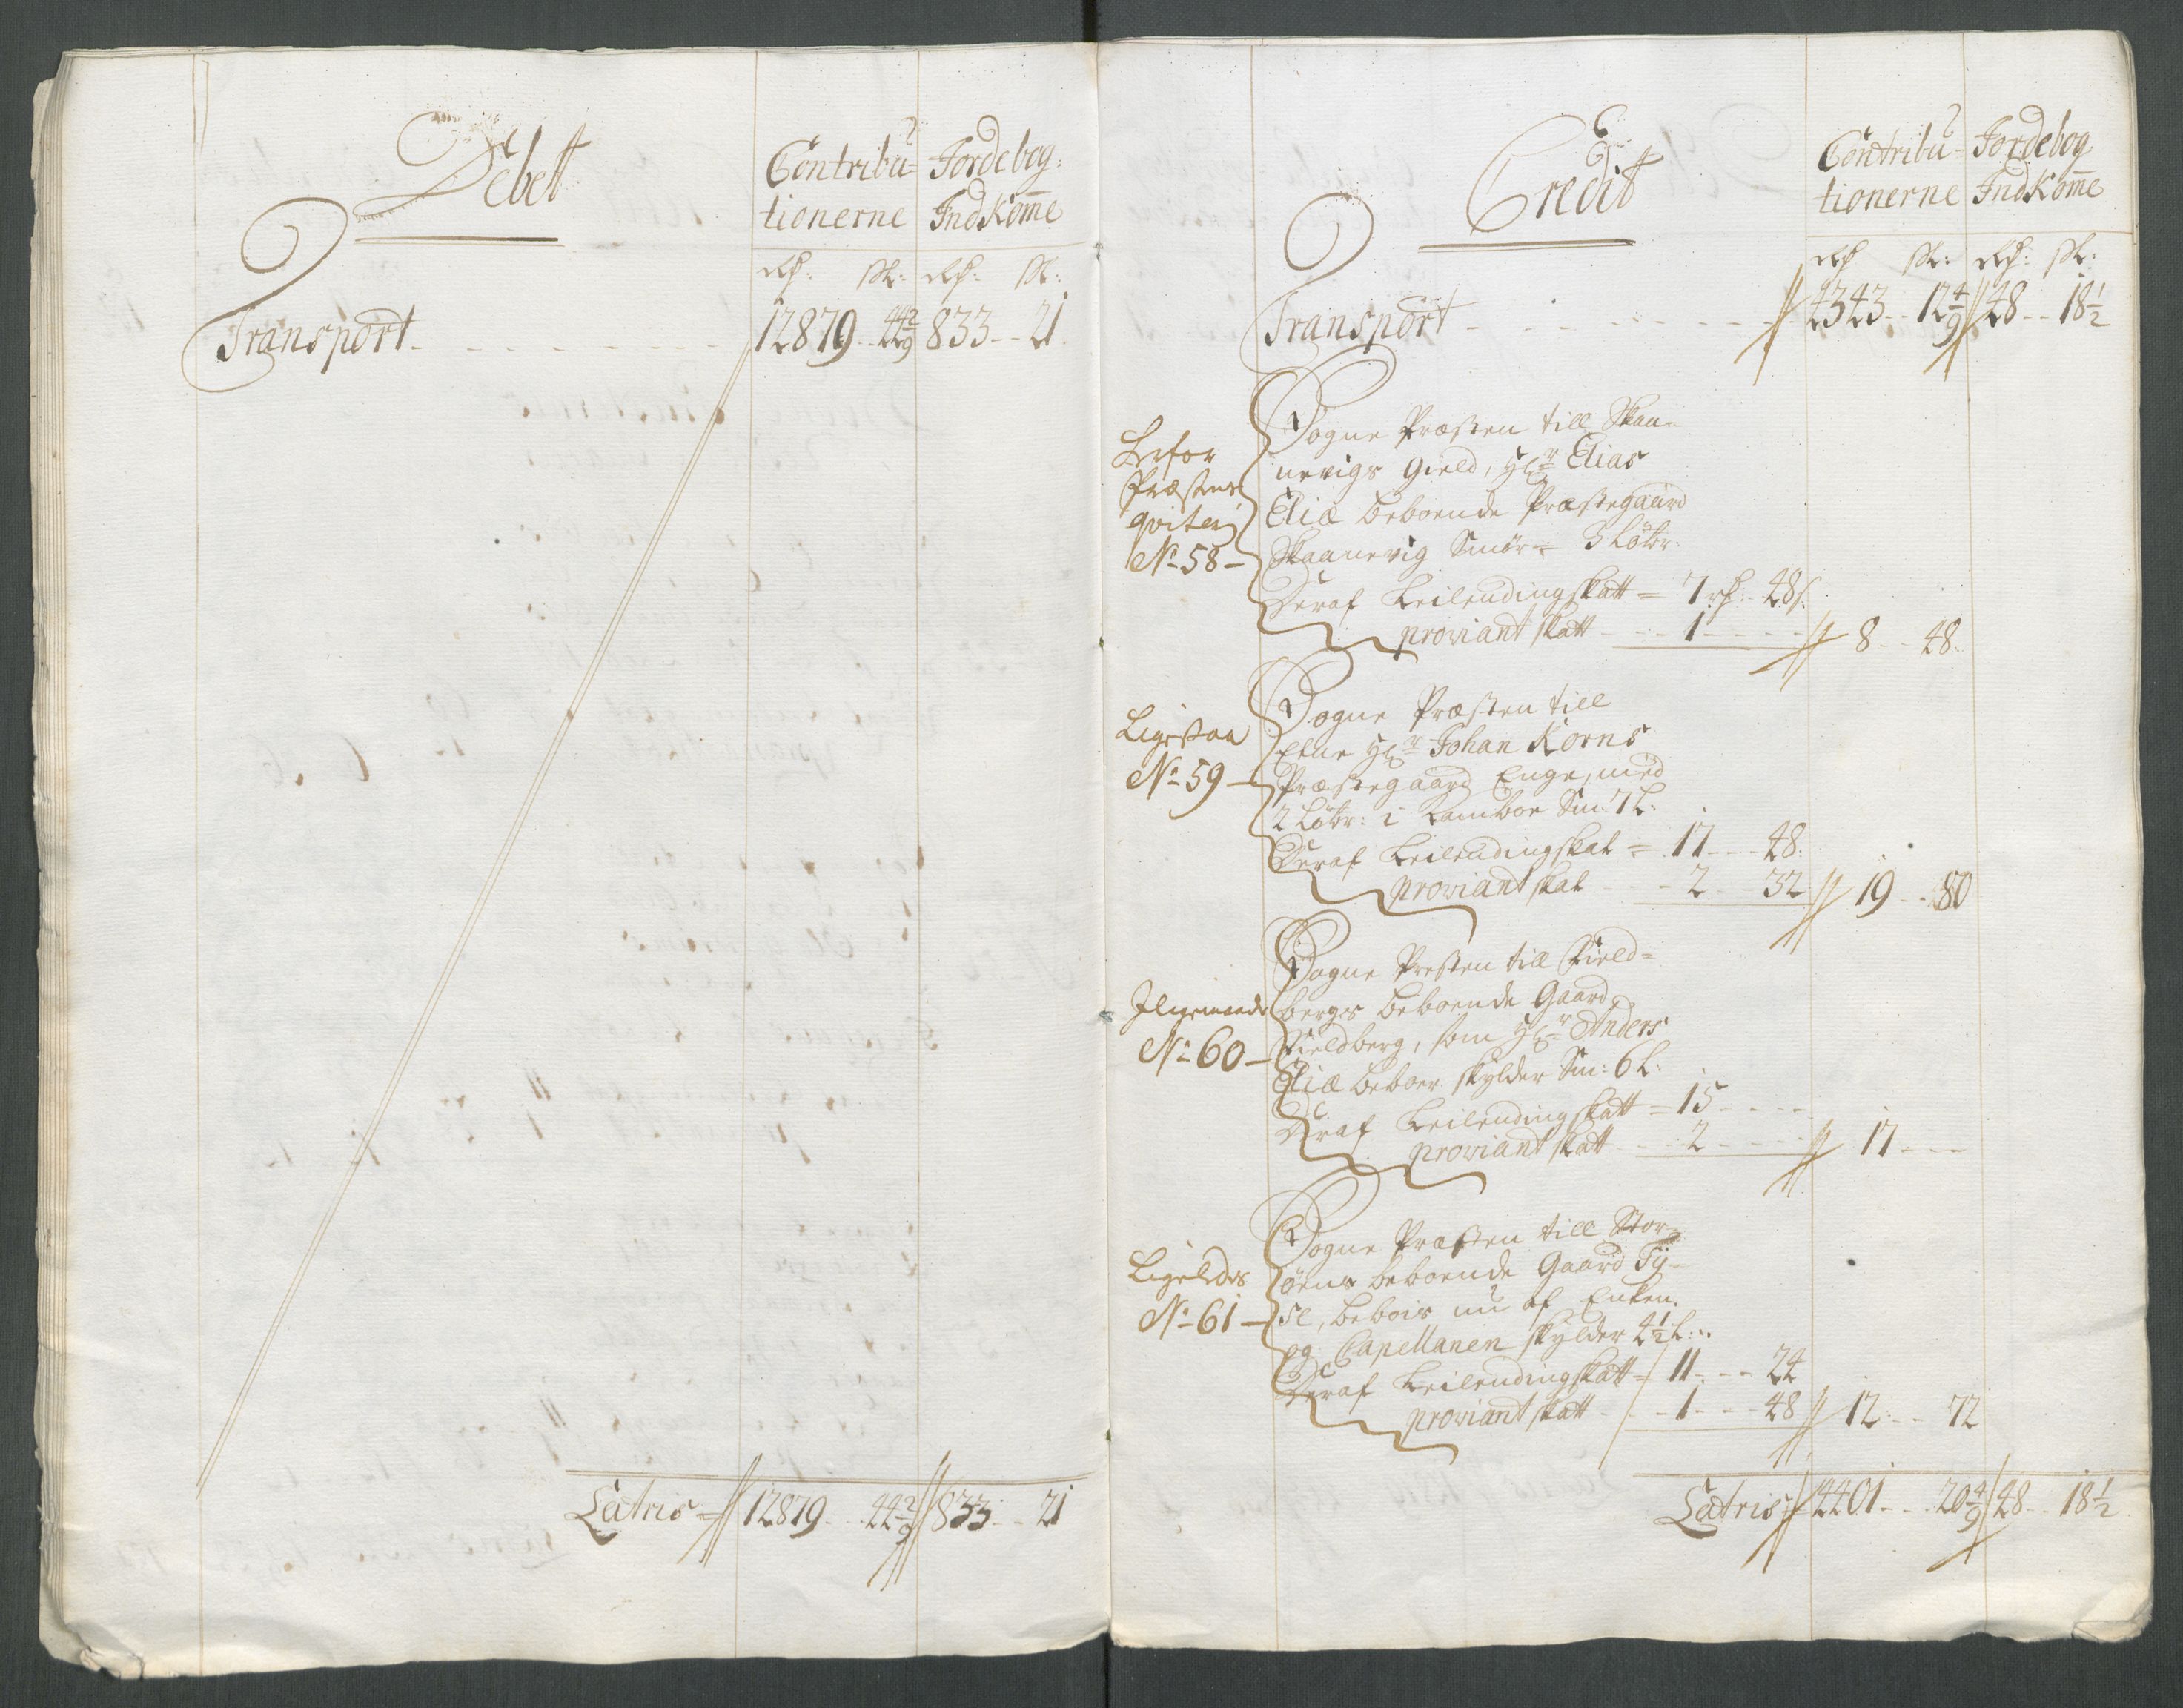 Debett
Contribu=
tionerne
Jordebog:
Indkom̅e
Rd: sk: Rd: sk:
Transport - - - - - - - 12879 - - 44 2/9 833 - - 21
Latris = 12879 - - 44 2/9 833 - - 21
Credit
Contribu=
tionerne
Jordebog
Indkom̅e
Rd sk: Rd: sk:
Transport - - - - - - - 4343 - - 12 4/9 48 - - 18 1/2
Herfor
Præstens
qviter:
No 58 -
Sogne Præsten till Skaa=
nevigs gield, Hr Elias
Eliæ beboende Præstegaard
Skaanevig Smør = 3 Løbr:
Deraf Leilendingskatt = 7 rd: 48 s:
proviant skatt - - - 1 - - - - 8 - - 48
Ligesaa
No 59 -
Sogne Præsten till
Etne Hr Johan Korns
Præstegaard Enge, med
2 Løbr: i Tambor Sm: 7 L:
Deraf Leilendingskat = 17 - - - 48
proviant skat - - - 2 - - 32 19 - - 80
Iligemaade
No 60 -
Sogne Presten till Field=
bergs beboende Gaard
Fieldberg, som Hr Anders
Eliæ beboer skylder Sm: 6 L:
Deraf Leilendingskatt = 15 - - - -
proviant skatt - - 2 - - - - 17 - - -
Ligeledes
No 61 -
Sogne Præsten till Stor=
øens beboende Gaard Ty=
se, bebois nu af Enken
og Capellanen skylder 4 1/2 L:
Deraf Leilendingskatt = 11 - - - 24
proviant skatt - - - 1 - - - 48 12 - - 72
Latris = 4401 - - 20 4/9 48 - - 18 1/2